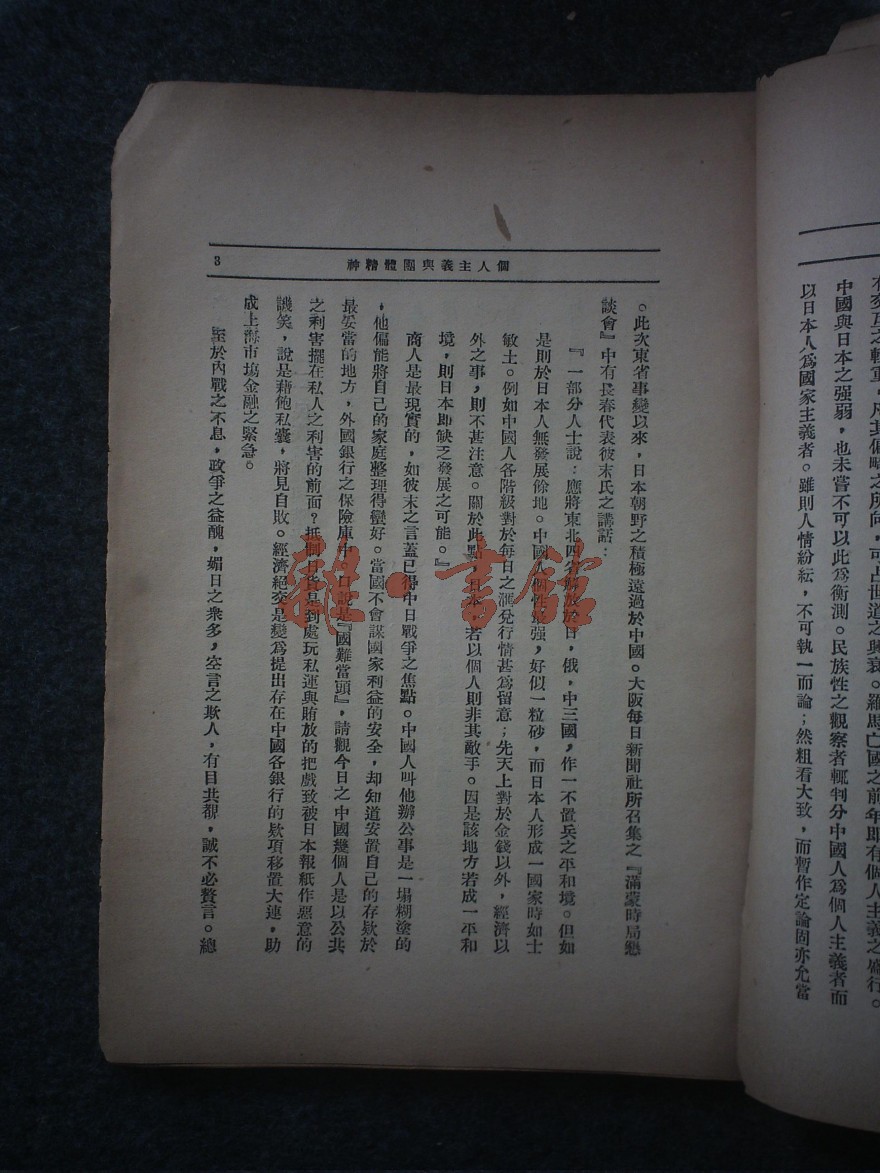 中國與日本之强弱，也未嘗不可以此爲衡測。民族性之觀察者輒判分中國人爲個人主義者而
以日本人爲國家主義者。雖則人情紛紜，不可執一而論；然粗看大致，而暫作定論固亦允當
個人主義與團體精神
3
。此次東省事變以來，日本朝野之積極遠過於中國。大阪每日新聞社所召集之『滿蒙時局懇
談會』中有長春代表彼末氏之講話：
『一部分人士說：應將東北四省解放於日，俄，中三國，作一不置兵之平和境。但如
是則於日本人無發展餘地。中國人個性最强，好似一粒砂，而日本人形成一國家時如士
敏土。例如中國人各階級對於每日之滙兌行情甚爲留意；先天上對於金錢以外，經濟以
外之事，則不甚注意。關於此點，日本人若以個人則非其敵手。因是該地方若成一平和
境，則日本即缺乏發展之可能。』
商人是最現實的，如彼末之言蓋已得中日戰爭之焦點。中國人叫他辦公事是一塌糊塗的
，他偏能將自己的家庭整理得蠻好。當國不會謀國家利益的安全，却知道安置自己的存欵於
最妥當的地方，外國銀行之保險庫中。口說是『國難當頭』，請觀今日之中國幾個人是以公共
之利害擺在私人之利害的前面？抵制日貨是到處玩私運與賄放的把戲致被日本報紙作惡意的
譏笑，說是藉飽私囊，將見自敗。經濟絕交是變爲提出存在中國各銀行的欵項移置大連，助
成上海市塲金融之緊急。
至於內戰之不息，政爭之益醜，媚日之衆多，空言之欺人，有目共覩，誠不必贅言。總
雜·書館